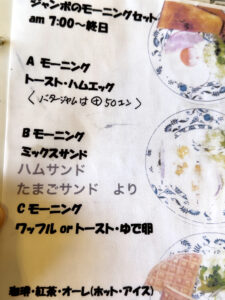 ジャンボのモーニングセット
am 7:00～終日
A モーニング
トースト・ハムエッグ
(バタージャムは⊕50コン)
B モーニング
ミックスサンド
ハムサンド
たまごサンド より
C モーニング
ワッフル orトースト・ゆで卵
珈琲・紅茶・オーレ(ホット・アイス)